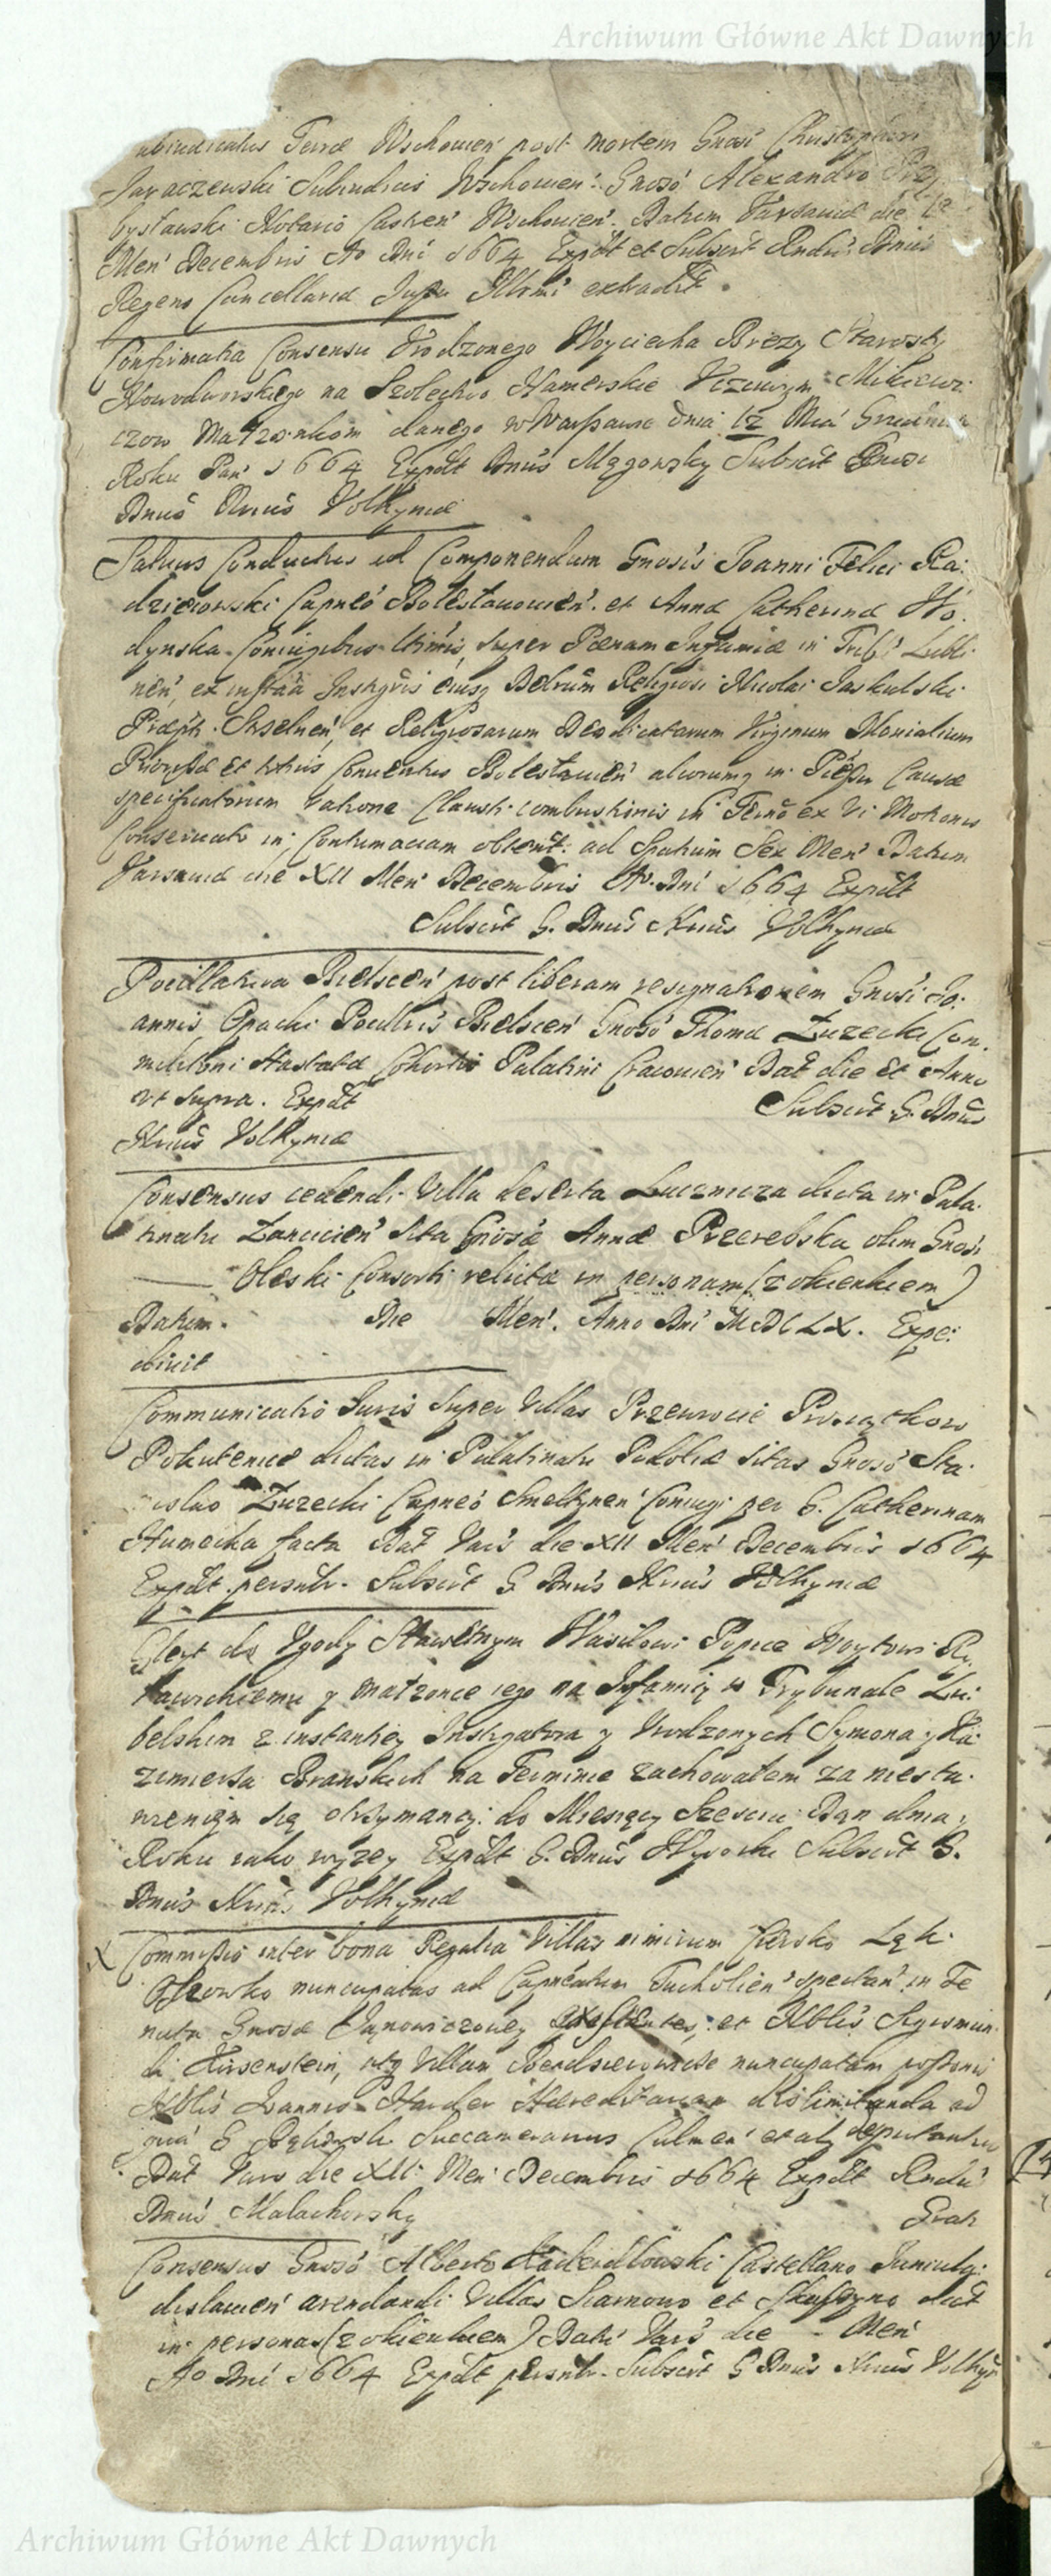 Archiwum Główne Akt Dawnych
Terræ Wschouen' post mortem Gnosi Christophori
Jaraczewski Subiudicis Wschouen': Gnoso Alexandro Przy
bysławski Notario Castren' Wschouien'. Datum Varsauiæ die
Men' Decembris Ao Dni 1664 Expdt et Subscrt Rndus Dnus
Regens Cancellariæ Jussu Illrmi extradit.
Confirmatia Consensu Vrodzonego Woyciecha Brezy Starosty
Nowodworskiego na Szolectwo Hamerskie Vczciwym Mikiewi-
czow Małzonkom danego w Warszawie dnia 12 Mca Grudnia
Roku Pan' 1664 Expdt Dnus Mągowsky Subscrt Gnosi
Dnus Nrius Volhyniæ
Saluus Conductus ad Componendum Gnosis Joanni Felici Ra-
dzieiowski Capneo Bolestauouien'. et Annæ Catherinæ Wo-
dynska Coniugibus ltimis, super Pænam Infamiæ in Tribli Lubli
nen', ex insttaa Instigris eiusq Delrum Religiosi Nicolai Jaskulski
Præpti. Strzelnen', et Religiosarum Deo dicatarum Virginum Monialium
Priorissæ et totius Conuentus Bolestauien' aliorumq in Piessu Causæ
specificatorum ratione Claustri combustionis in Termo ex Vi Motionis
Conseruati in Contumaciam obtent: ad Spatium Sex Men' Datum
Varsauiæ die XII Men' Decembris Ao. Dni 1664 Expdt
Subscrt G. Dnus Nrius Volhyniæ
Pocillatura Bielscen' post liberam resignationem Gnosi Jo-
annis Opacki Pocilltris Bielscen' Gnoso Thomæ Zurecki Com-
militoni Hastatæ Cohortis Palatini Cracouien' Dat die et Anno
vt supra. Expdt Subscrt G. Dnus
Nrius Volhyniæ
Consensus cedendi Villa deserta Lucznicza dicta in Pala-
tinatu Lancicien' sita Gnosæ Annæ Przerebska olim Gnosi
Oleski Consorti relicta in personam (z okienkiem)
Datum. Die Men'. Anno Dni MDCLX. Expe-
diuit
Communicatio Juris super Villas Przewrocie Proszątkow
Pokutence dictas in Palatinatu Podoliæ sitas Gnoso Sta-
nislao Zurecki Capneo Smeltynen' Coniugi per G. Catherinam
Humecka facta Dat Vars die XII Men' Decembris 1664
Expdt persntr. Subscrt G Dnus Nrius Volhyniæ
Gleyt do Zgody Sławetnym Wasilowi Popice Woytowi Ry-
kawickiemu y małzonce iego na Infamią w Trybunale Lu-
belskim z instantiey Instygatora y Vrodzonych Symona y Ka-
zimierza Branskich na Terminie zachowałem za niesta-
wieniem się otrzymaney: do Miesięcy Szesciu Dan dnia,
Roku iako wyzey Expdt G. Dnus Wysocki Subscrt G.
Dnus Nrius Volhyniæ
X Commissio inter bona Regalia Villas nimirum Ciersko Ląk.
Oszowko nuncupatas ad Capneatum Tucholien' spectan' in Te
nuta Gnosæ Janowiczowey existentes, et Nblis Sigismun-
di Hirsenstein, atq Villam Bendzierowicze nuncupatam
Nblis Joannis Harder Hæreditariam dislimitanda ad
quã G Bąkowski Succamerarius Culmen' et alij deputantur
Dat Vars die XII Men' Decembris 1664 Expdt Rndus
Dnus Malachowsky Grab
Consensus Gnoso Alberto Kadzidlowski Castellano Juniula-
dislauien' arendandi Villas Siarnowo et dict
in personas (z okienkiem) Dati Vars die - Men'
Ao Dni 1664 Expdt persntr. Subscrt G Dnus Nrius Volhyn
Archiwum Główne Akt Dawnych